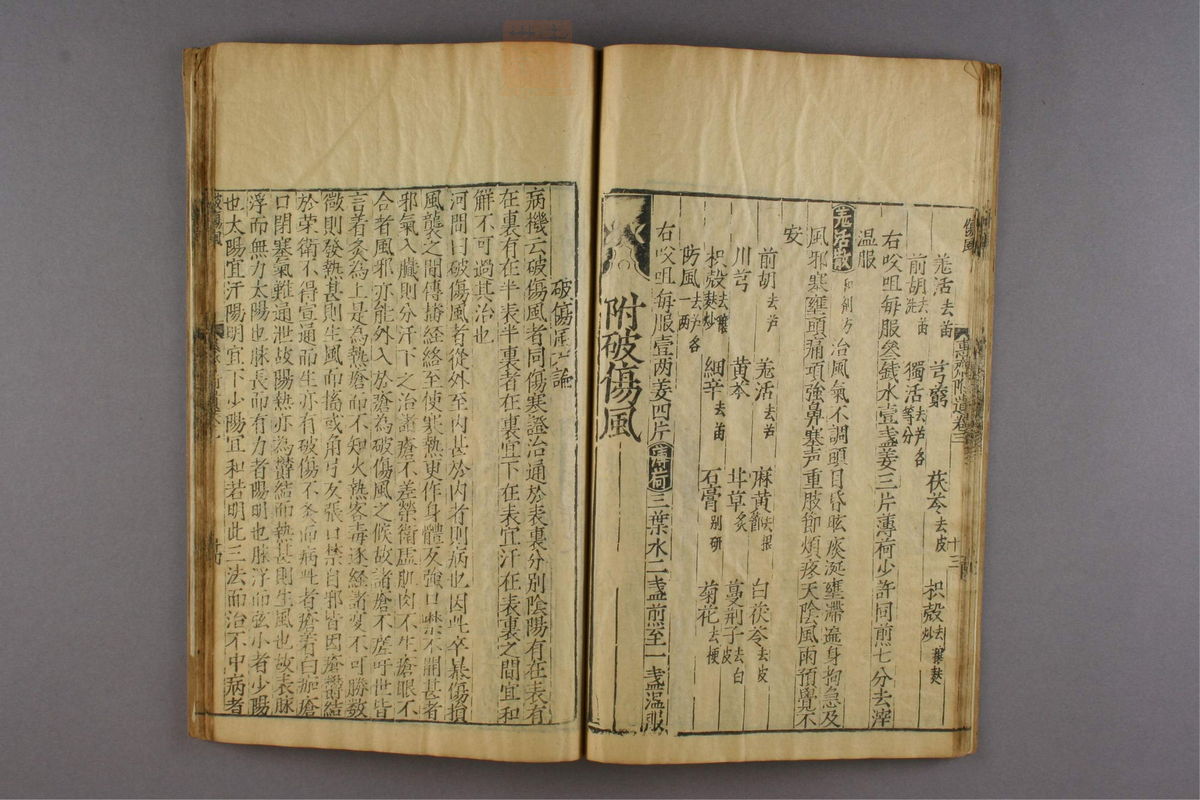 羗活去苗　芎藭　茯苓去皮　枳殻去穰麩炒
前胡去苗洗　獨活去芦各等分
右㕮咀每服叁錢水壹盞姜三片薄荷少許同煎七分去滓
温服
羗活散和劑方治風氣不調頭目昏眩痰涎壅滯遍身拘急及
風邪寒壅頭痛項強鼻塞声重肢節煩疼天陰風雨預覺不
安
前胡去芦　羗活去芦　麻黄去根節　白茯苓去皮
川芎　黄芩　甘草炙　蔓荊子去白皮
枳殻去穰麩炒　細辛去苗　石膏别研　菊花去梗
防風去芦各一两
右㕮咀每服壹两姜四片薄荷三葉水二盞煎至一盞温服
附破傷風
破傷風論
病機云破傷風者同傷寒證治通於表裏分別陰陽有在表有
在裏有在半表半裏者在裏宜下在表宜汗在表裏之間宜和
觧不可過其治也
河間曰破傷風者從外至内甚於内者則病也因此卒暴傷損
風襲之間傳播經絡至使寒熱更作身體反強口噤不開甚者
邪氣入臟則分汗下之治諸瘡不差榮衛虚肌肉不生瘡眼不
合者風邪亦能外入於瘡為破傷風之候故諸瘡不差吁世皆
言著灸為上是為熱瘡而不知火熱客毒逐經諸變不可勝數
微則發熱甚則生風而搐或角弓反張口禁目邪皆因瘡鬱結
於榮衛不得宣通而生亦有破傷不灸而病此者瘡着白痂瘡
口閉塞氣難通泄故陽熱亦為鬱結而熱甚則生風也故表脉
浮而無力太陽也脉長而有力者陽明也脉浮而弦小者少陽
也太陽宜汗陽明宜下少陽宜和若明此三法而治不中病者